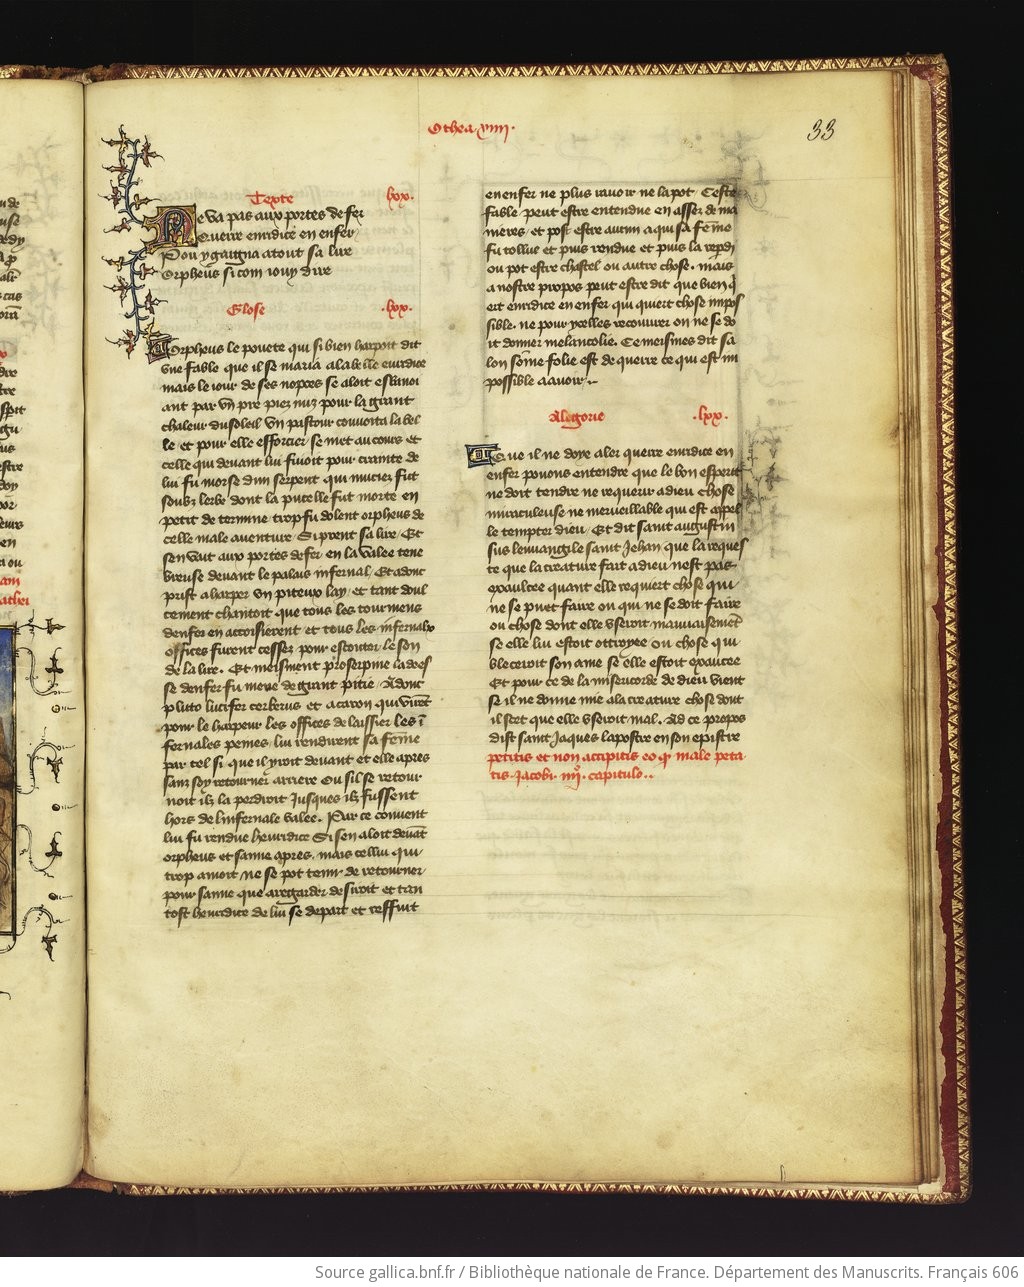 Othea .viiii.
33
Texte .lxx.
Ne va pas aux portes defer
Querre eurdice en enfer
Pou y gaaigna atout sa lire
Orpheus si com jouy dire
Glose .lxx.
Orpheus le pouete qui si bien harpoit dit
une fable que il se maria alabelle eurdice
mais le jour de ses nopces se aloit esbanoi
ant par un pre piez nuz pour la grant
chaleur dusoleil Un pastour couvoita la bel
le et pour elle efforcier se met au cours et
celle qui devant lui fuioit pour crainte de
lui fu morse dun serpent qui muciez fut
soubz lerbe dont la pucelle fut morte en
petit de termine trop fu dolent orpheus de
celle male aventure Si prent sa lire Et
sen vait aux portes defer en la valee tene
breuse devant le palais infernal Et adont
prist a harper un piteux lay et tant doul
cement chantoit que tous les tourmens
denfer en accoisierent et tous les infernalx
offices furent cessez pour escouter le son
de la lire. Et meisment proserpine la dees
se denfer fu meue de grant pitie Adont
pluto lucifer cerberus et acaron qui virēt
pour le harpeur les offices de laissier les ī
fernales peines lui rendirent sa feme
par tel si que il yroit devant et elle apres
sanz soy retourner arriere Ou sil se retour
noit il la perdroit jusques ilz fussent
hors de linfernale valee. Par ce convent
lui fu rendue heurdice Si sen aloit devāt
orpheus et samie apres. mais cellui qui
trop amoit ne se pot tenir de retourner
pour samie que aregarder desiroit et tan
tost heurdice de lui se depart et reffuit
en enfer ne plus ravoir ne la pot. Ceste
fable peut estre entendue en assez de ma
nieres et post estre avint aqui sa feme
fu tollue et puis rendue et puis la reperdi
ou pot estre chastel ou autre chose. mais
a nostre propos peut estre dit que bien q̄
ert eurdice en enfer qui quiert chose impos
sible. ne pour ycelles recouvrer on ne se do
it donner melancolie. Ce meismes dit sa
lon sōme folie est de querre ce qui est im
possible a avoir..
Alegorie .lxx.
Que il ne doye aler querre eurdice en
enfer pouons entendre que le bon esperit
ne doit tendre ne requerir adieu chose
miraculeuse ne merveillable qui est appel
le tempter dieu. Et dit saint augustin
sus leuvangile saint Jehan que la reques
te que la creature fait a dieu nest pas
exaulcee quant elle requiert chose qui
ne se puet faire ou qui ne se doit faire
ou chose dont elle useroit mauvaisemēt
se elle lui estoit ottroyee ou chose qui
bleceroit son ame se elle estoit exaucee
Et pour ce de la misericorde de dieu vient
se il ne donne mie ala creature chose dont
il scet que elle useroit mal. Ad ce propos
dist saint Jaques lapostre en son epistre
petitis et non accipitis eo qz male peta
tis. Jacobi. iiijo. capitulo..
Source gallica.bnf.fr / Bibliothèque nationale de France. Département des Manuscrits. Français 606